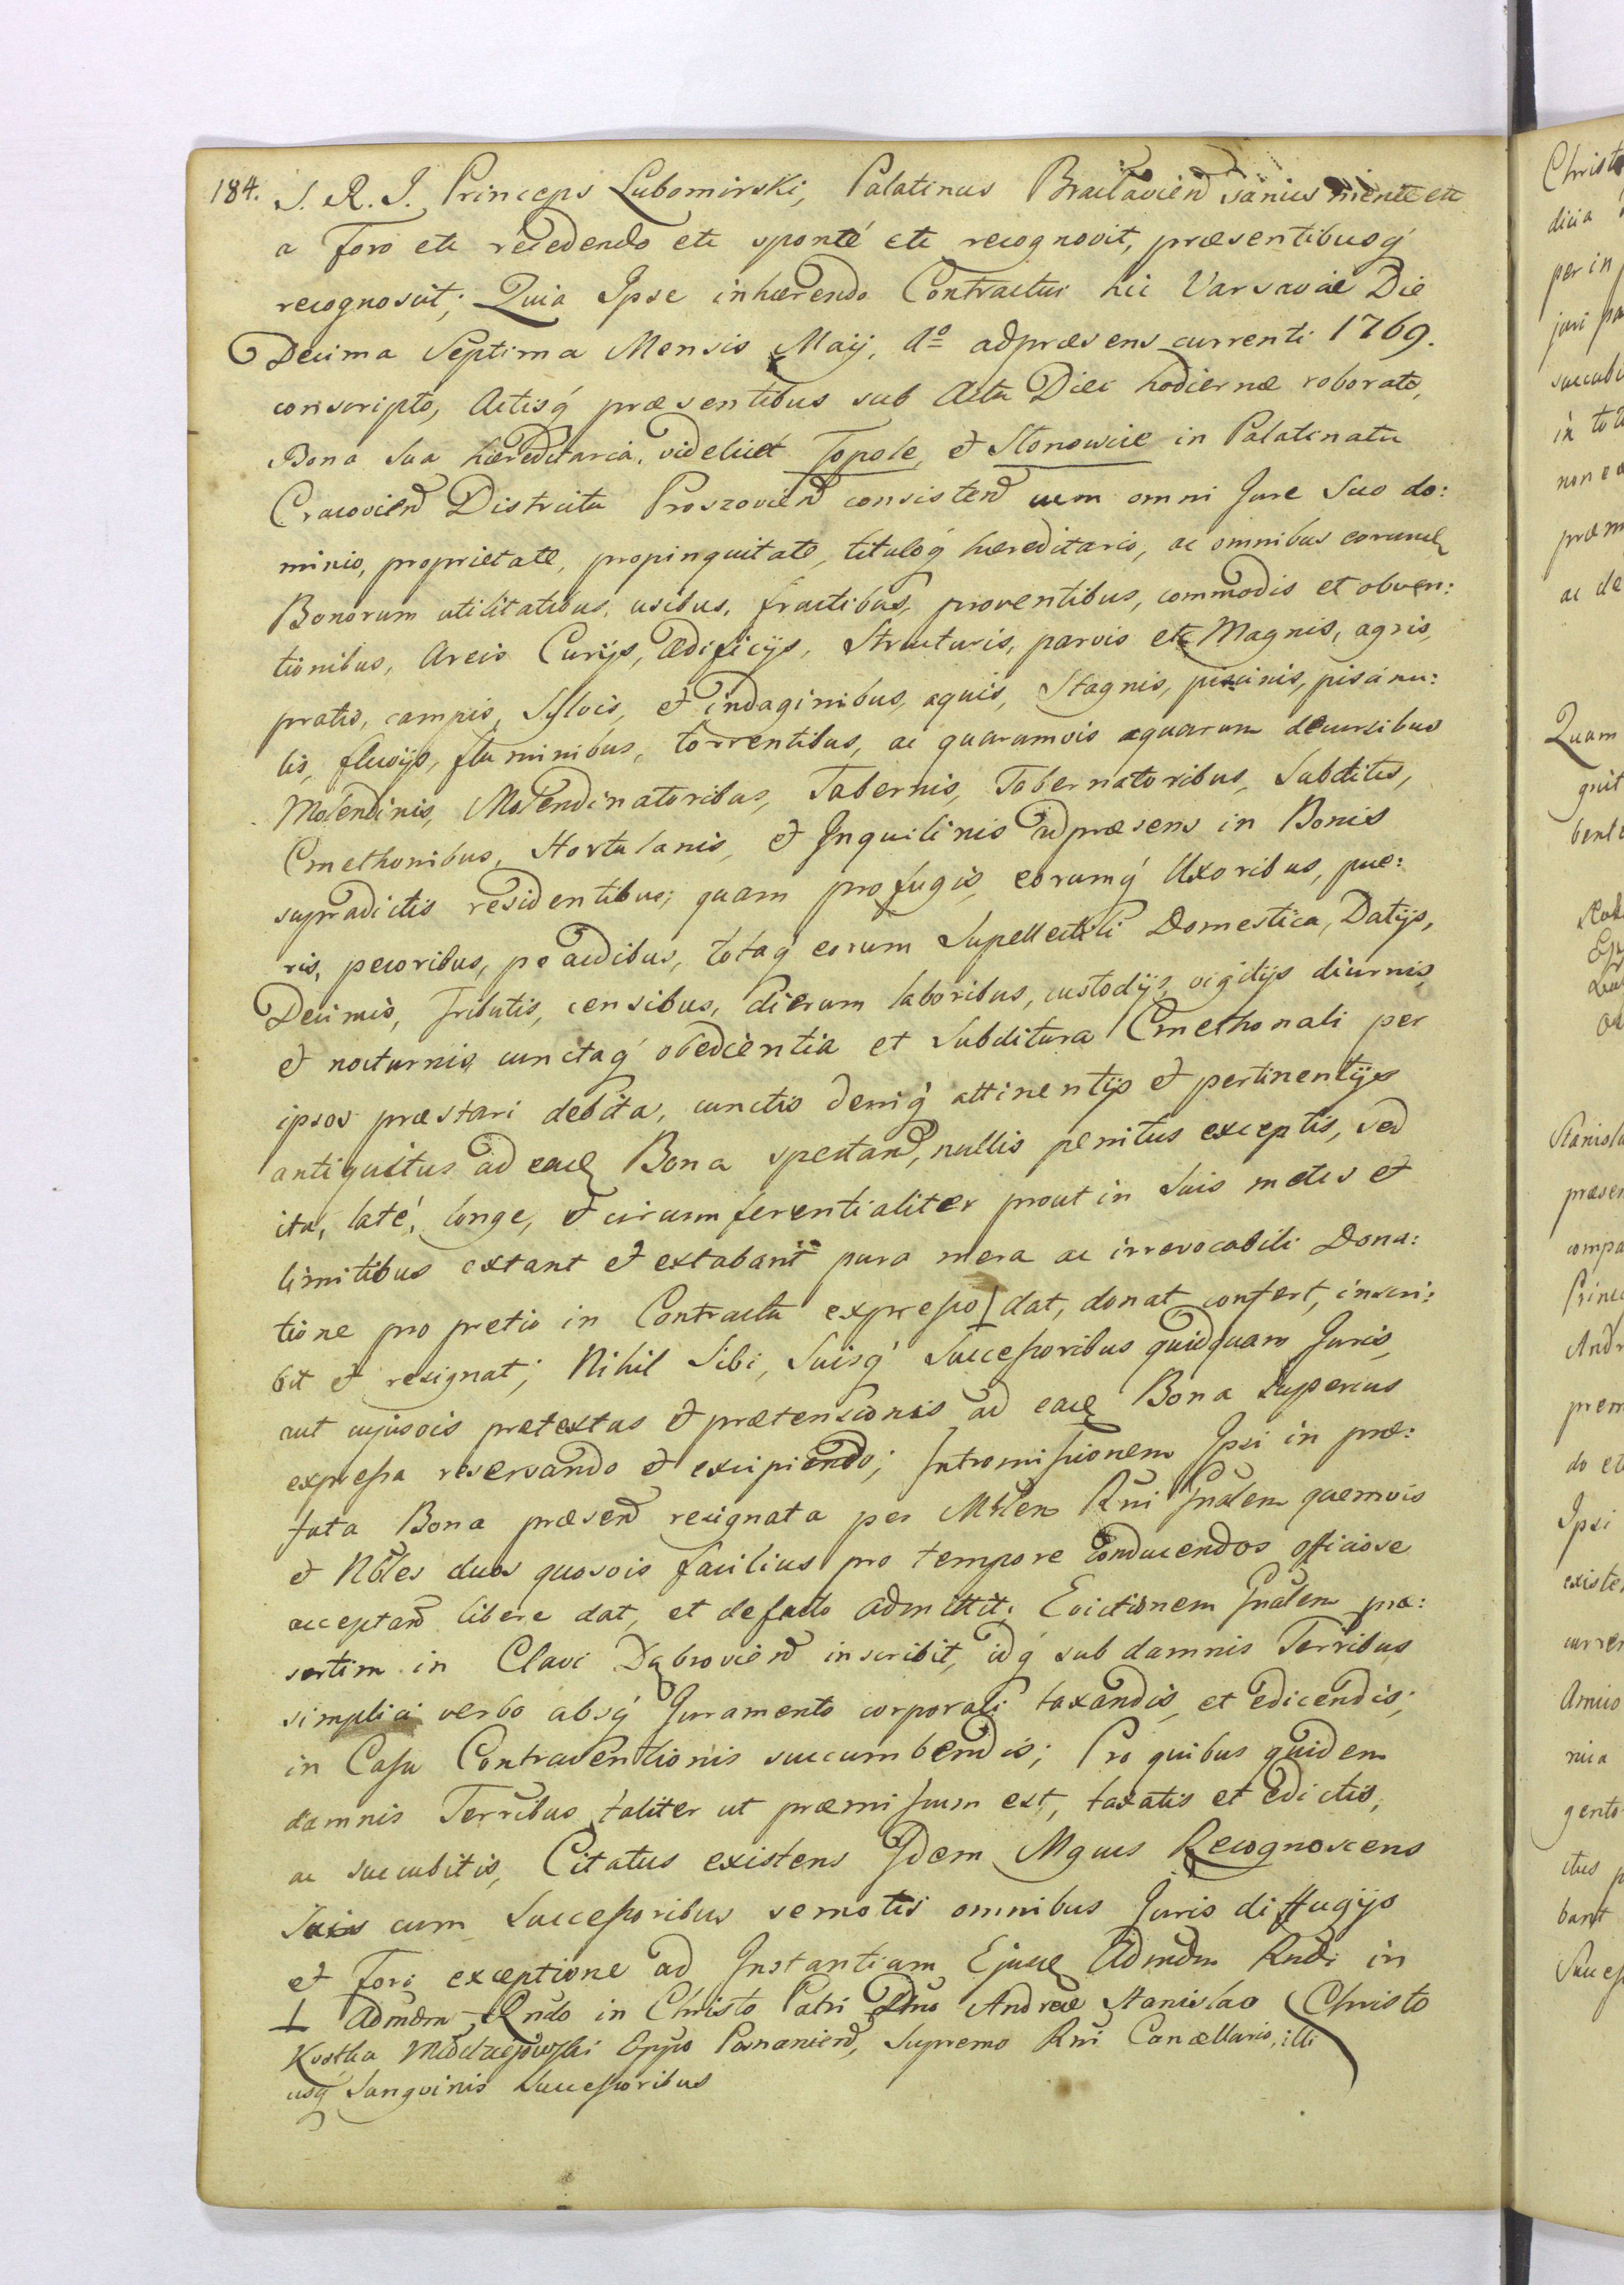 184. S. R. I. Princeps Lubomirski, Palatinus Braclavien sanus mente etc
a Foro etc recedendo etc sponté etc recognovit, præsentibusq́
recognoscit; Quia Ipse inhærendo Contractui hic Varsaviæ Die
Decima Septima Mensis Maij, Aº adpræsens currenti 1769.
conscripto, Actisq́ præsentibus sub Actu Diei hodiernæ roborato,
Bona Sua hæreditaria, videlicet Topole, et Stonowice in Palatinatu
Cracovien Districtu Proszovien consisten cum omni Jure Suo do:
minio, proprietate, propinquitate, tituloq́ hæreditario, ac omnibus eorund
Bonorum utilitatibus, usibus, fructibus, proventibus, commodis et obven:
tionibus, Areis Curijs, ædificijs, Structuris, parvis et Magnis, agris,
pratis, campis, Sylvis, et indaginibus, aquis, Stagnis, piscinis, piscinu:
lis, fluvijs, fluminibus, torrentibus, ac quarumvis aquarum decursibus
Molendinis, Molendinatoribus, Tabernis, Tabernatoribus, Subditis,
Cmethonibus, Hortulanis, et Inquilinis adpræsens in Bonis
supradictis residentibus; quam profugis, eorumq́ Uxoribus, pue:
ris, pecoribus, pecudibus, totaq́ eorum Supellectili Domestica, Datijs,
Decimis, Tributis, censibus, dierum laboribus, custodijs, vigilijs diurnis,
et nocturnis, cunctaq́ obedientia et Subditura Cmethonali per
ipsos præstari debita, cunctis deniq́ attinentijs et pertinentijs
antiquitus ad ead Bona spectan, nullis penitus exceptis, sed
ita, laté, longe, et circumferentialiter prout in Suis metis et
limitibus extant et extabant pura mera ac irrevocabili Dona:
tione pro pretio in Contractu expresso ⊥ dat, donat, confert, inscri:
bit et resignat; Nihil Sibi, Suisq́ Successoribus quidquam Juris,
aut cujusvis pretextus et prætensionis ad ead Bona superius
expressa reservando et excipiendo; Intromissionem Ipsi in præ:
fata Bona præsen resignata per Mlem Rni Gnalem quemvis
et Nbles duos quosvis facilius pro tempore conducendos officiose
acceptan libere dat, et defacto admittit; Evictionem Gnalem præ:
sertim in Clavi Dąbrovien inscribit, idq́ sub damnis Terribus
simplici verbo absq́ Juramento corporali taxandis, et edicendis;
in Casu Contraventionis succumbendis; Pro quibus quidem
damnis Terribus taliter ut præmissum est, taxatis et edictis,
ac succubitis, Citatus existens Idem Mgnus Recognoscens
Suis cum Successoribus semotis omnibus Juris diffugijs
et Fori exceptione ad Instantiam Ejusd Admdm Rndi in
⊥ Admdm Rndo in Christo Patri Dno Andreæ Stanislao Christo
Kostka Młodziejowski Eppo Posnanien, Supremo Rni Cancellario, illi
usq́ Sanguinis Successoribus